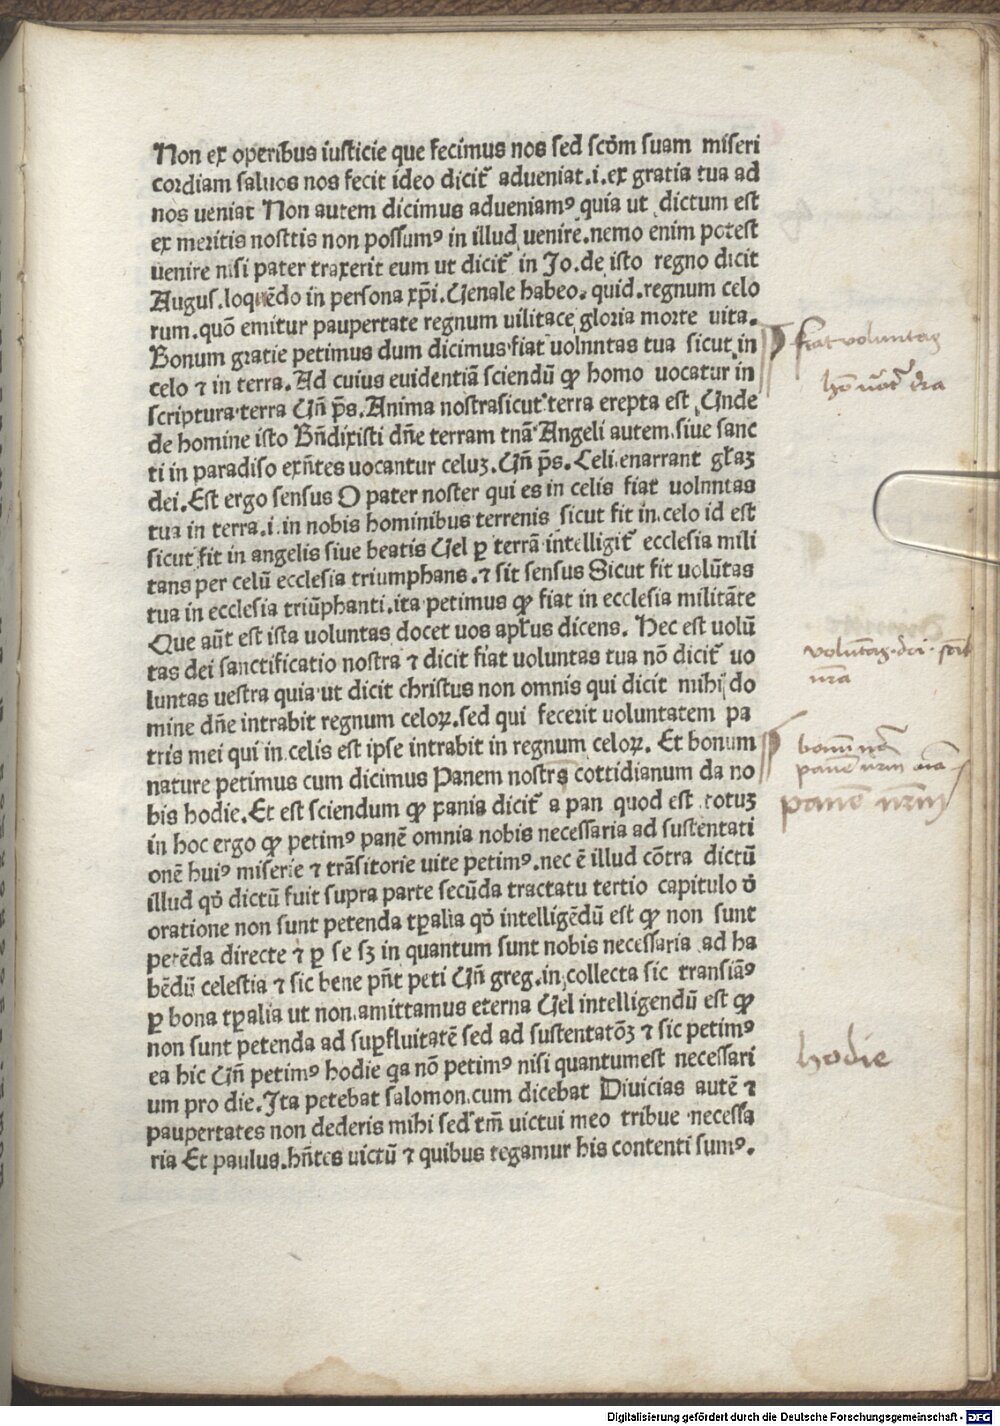 Non ex operibus iusticie que fecimus nos sed scḋm suam miseri
cordiam saluos nos fecit ideo dicit᷑ adueniat.i.ex gratia tua ad
nos ueniat Non autem dicimus adueniamꝰ quia ut dictum est
ex meritis nosttis non possumꝰ in illud uenire.nemo enim potest
uenire nisi pater traxerit eum ut dicit᷑ in Jo.de isto regno dicit
Augus.loquēdo in persona xp̄i.Uenale habeo.quid.regnum celo
rum.quō emitur paupertate regnum uilitace gloria morte uita.
Bonum gratie petimus dum dicimus fiat uolnntas tua sicut in
celo ⁊ in terra.Ad cuius euidentiā sciendū ꝙ homo uocatur in
scriptura terra Uñ p̄s.Anima nostrasicut terra erepta est Unde
de homine isto Bñdixisti dñe terram tnā Angeli autem siue sanc
ti in paradiso exñtes uocantur celuꝫ.Uñ p̄s.Celi enarrant gl̄aꝫ
dei.Est ergo sensus O pater noster qui es in celis fiat uolnntas
tua in terra.i.in nobis hominibus terrenis sicut fit in celo id est
sicut fit in angelis siue beatis Uel ꝑ terrā intelligit᷑ ecclesia mili
tans per celū ecclesia triumphans.⁊ sit sensus Sicut fit uolūtas
tua in ecclesia triūphanti.ita petimus ꝙ fiat in ecclesia militāte
Que aūt est ista uoluntas docet uos apl̄us dicens. Hec est uolū
tas dei sanctificatio nostra ⁊ dicit fiat uoluntas tua nō dicit᷑ uo
luntas uestra quia ut dicit christus non omnis qui dicit mihi do
mine dñe intrabit regnum celoꝝ.sed qui fecerit uoluntatem pa
tris mei qui in celis est ipse intrabit in regnum celoꝝ. Et bonum
nature petimus cum dicimus Panem nostrs cottidianum da no
bis hodie.Et est sciendum ꝙ pania dicit᷑ a pan quod est totuꝫ
in hoc ergo ꝙ petimꝰ panē omnia nobis necessaria ad sustentati
onē huiꝰ miserie ⁊ trāsitorie uite petimꝰ.nec ē illud cōtra dictū
illud qḋ dictū fuit supra parte secūda tractatu tertio capitulo ḋ
oratione non sunt petenda tꝑalia qḋ intelligēdū est ꝙ non sunt
petēda directe ⁊ ꝑ se sꝫ in quantum sunt nobis necessaria ad ha
bēdū celestia ⁊ sic bene pñt peti Uñ greg.in collecta sic transiāꝰ
ꝑ bona tꝑalia ut non amittamus eterna Uel intelligendū est ꝙ
non sunt petenda ad suꝑfluitatē sed ad sustentatōꝫ ⁊ sic petimꝰ
ea hic Uñ petimꝰ hodie qa nō petimꝰ nisi quantumest necessari
um pro die.Ita petebat salomon.cum dicebat Diuicias autē ⁊
paupertates non dederis mihi sed tm̄ uictui meo tribue necessa
ria Et paulus.hñtes uictū ⁊ quibus tegamur his contenti sumꝰ.
fiat voluntas
hō uōt᷑ t̄ra
volūtas dei
nr̄a
bonū
panē nr̄m
panē nr̄m
hodie
Digitalisierung gefördert durch die Deutsche Forschungsgemeinschaft - DFG